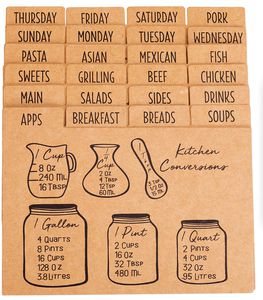 THURSDAY FRIDAY SATURDAY PORK
SUNDAY MONDAY TUESDAY WEDNESDAY
PASTA ASIAN MEXICAN FISH
SWEETS GRILLING BEEF CHICKEN
MAIN SALADS SIDES DRINKS
APPS BREAKFAST BREADS SOUPS
Kitchen
Conversions
1 Cup
8 OZ
240 ML
16 TBSP
1/4
Cup
2 OZ
4 TBSP
12 TSP
60 ML
1 Gallon
4 QUARTS
8 PINTS
16 CUPS
128 OZ
3.8 LITRES
1 Pint
2 CUPS
16 OZ
32 TBSP
480 ML
1 Quart
2 PINTS
4 CUPS
32 OZ
.95 LITRES